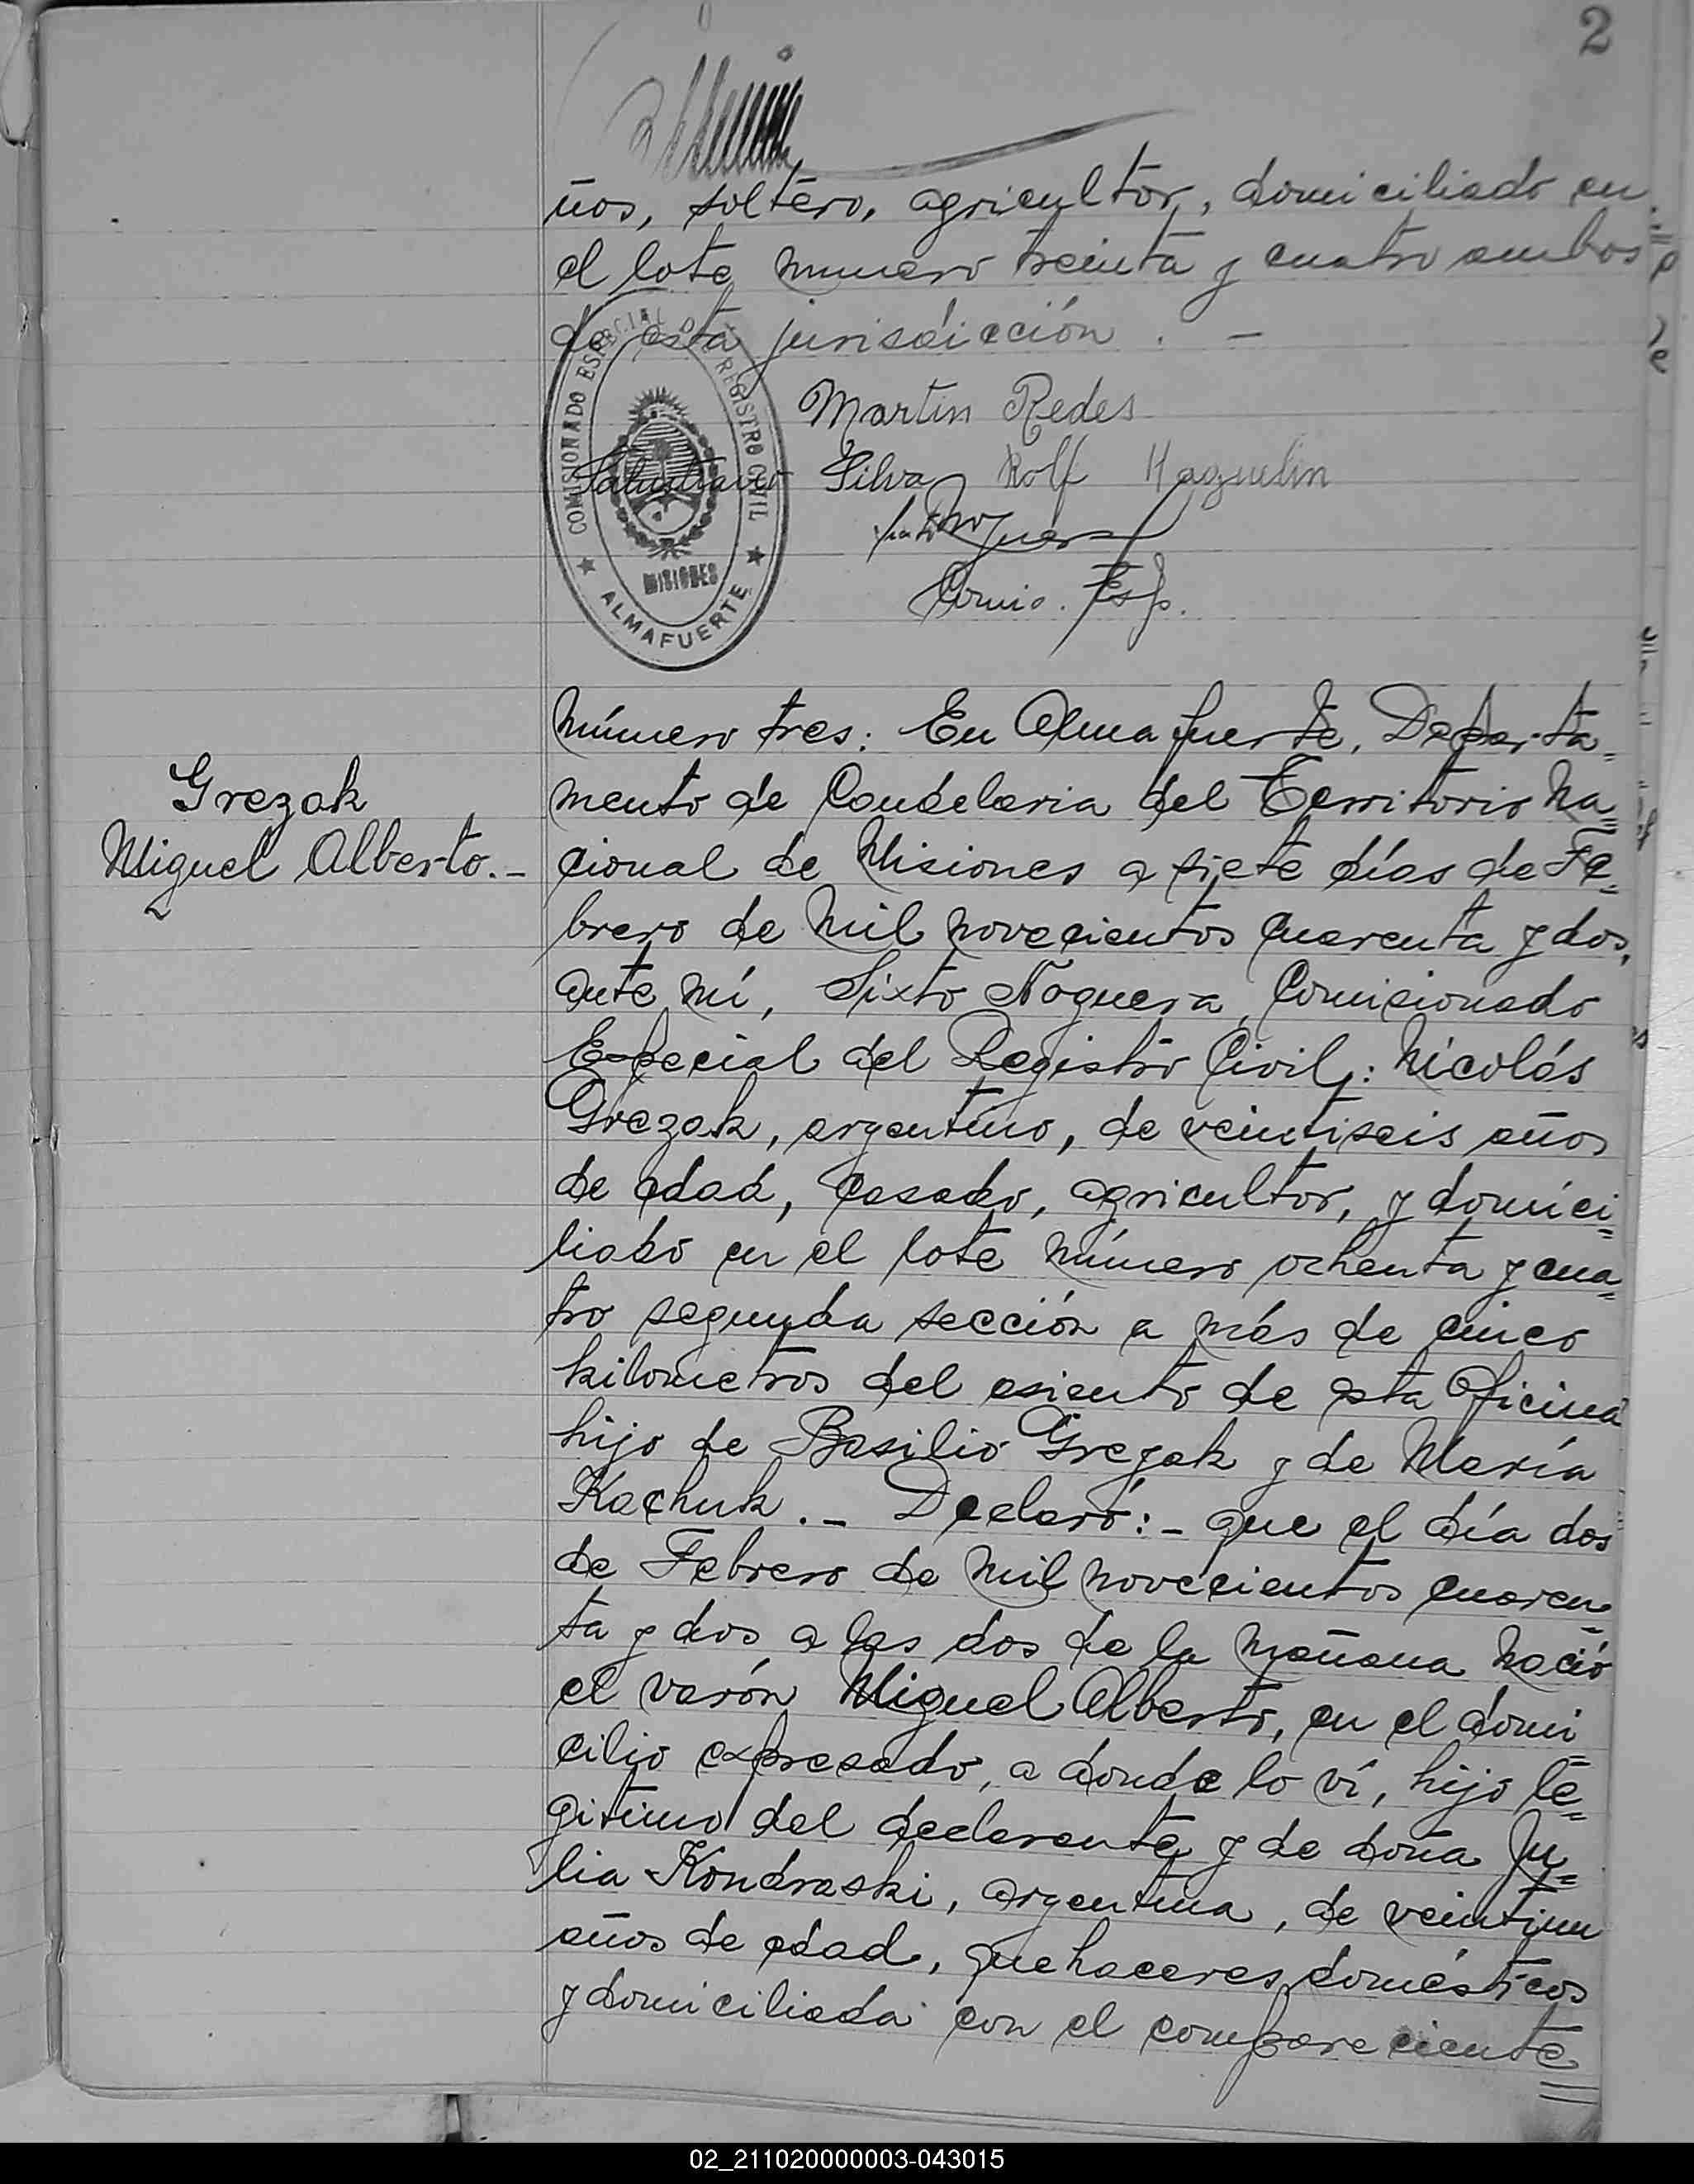 2
ños, soltero, agricultor, domiciliado en
el lote numero treinta y cuatro ambos
de esta jurisdicción. –
COMISIONADO ESPECIAL DEL REGISTRO CIVIL
MISIONES
★ ALMAFUERTE ★
Martin Redes
Salustiano Silva Rolf Haguelin
Noguera
Comio. Esp.
Grezak
Miguel Alberto.-
Número tres: En Almafuerte, Departa=
mento de Candelaria del Territorio Na=
cional de Misiones a siete días de Fe=
brero de mil novecientos cuarenta y dos,
ante mí, Sixto Noguera, Comicionado
Especial del Registro Civil,: Nicolás
Grezak, argentino, de veintiseis años
de edad, casado, agricultor, y domici=
liado en el lote número ochenta y cua=
tro segunda sección a más de cinco
kilometros del asiento de esta Oficina
hijo de Basilio Grezak y de María
Kachuk.– Declaró:– que el día dos
de Febrero de mil novecientos cuaren=
ta y dos a las dos de la mañana nació
el varón Miguel Alberto, en el domi=
cilio expresado, a donde lo ví, hijo le=
gitimo del declarante y de doña Ju=
lia Kondraski, argentina, de veintiun
años de edad, quehaceres domésticos
y domiciliada con el compareciente
02_211020000003-043015